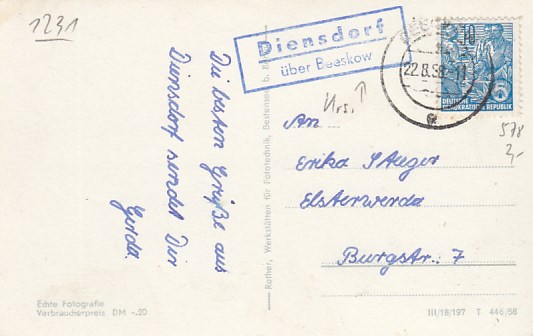 1231
Diensdorf
über Beeskow
22.8.58-11
10
DEUTSCHE
DEMOKRATISCHE REPUBLIK
578
2,-
Urs. ↑
Die besten Grüße aus
Diensdorf sendet Dir
Gerda.
An
Erika Steger
Elsterwerda
Burgstr. 7
Rather, Werkstätten für Fototechnik, Bestensee b.
Echte Fotografie
Verbraucherpreis DM -.20
III/18/197 T 446/58